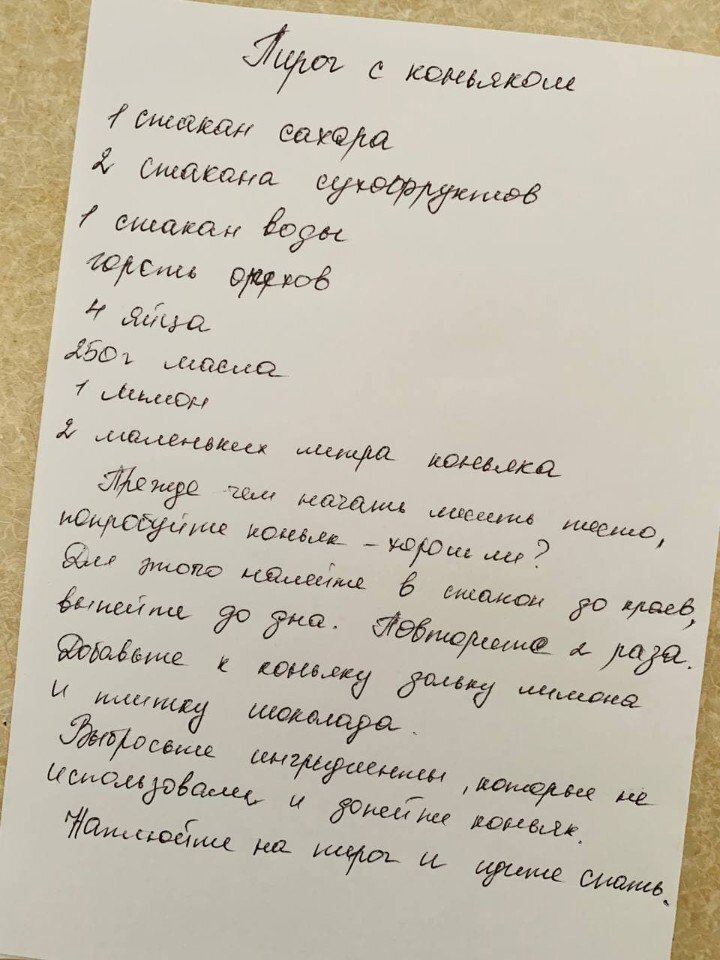 Пирог с коньяком
1 стакан сахара
2 стакана сухофруктов
1 стакан воды
горсть орехов
4 яйца
250г масла
1 лимон
2 маленьких литра коньяка
Прежде чем начать месить тесто,
попробуйте коньяк - хорош ли?
Для этого налейте в стакан до краев,
выпейте до дна. Повторите 2 раза.
Добавьте к коньяку дольку лимона
и плитку шоколада.
Выбросьте ингредиенты, которые не
использовали, и допейте коньяк.
Наплюйте на пирог и идите спать.